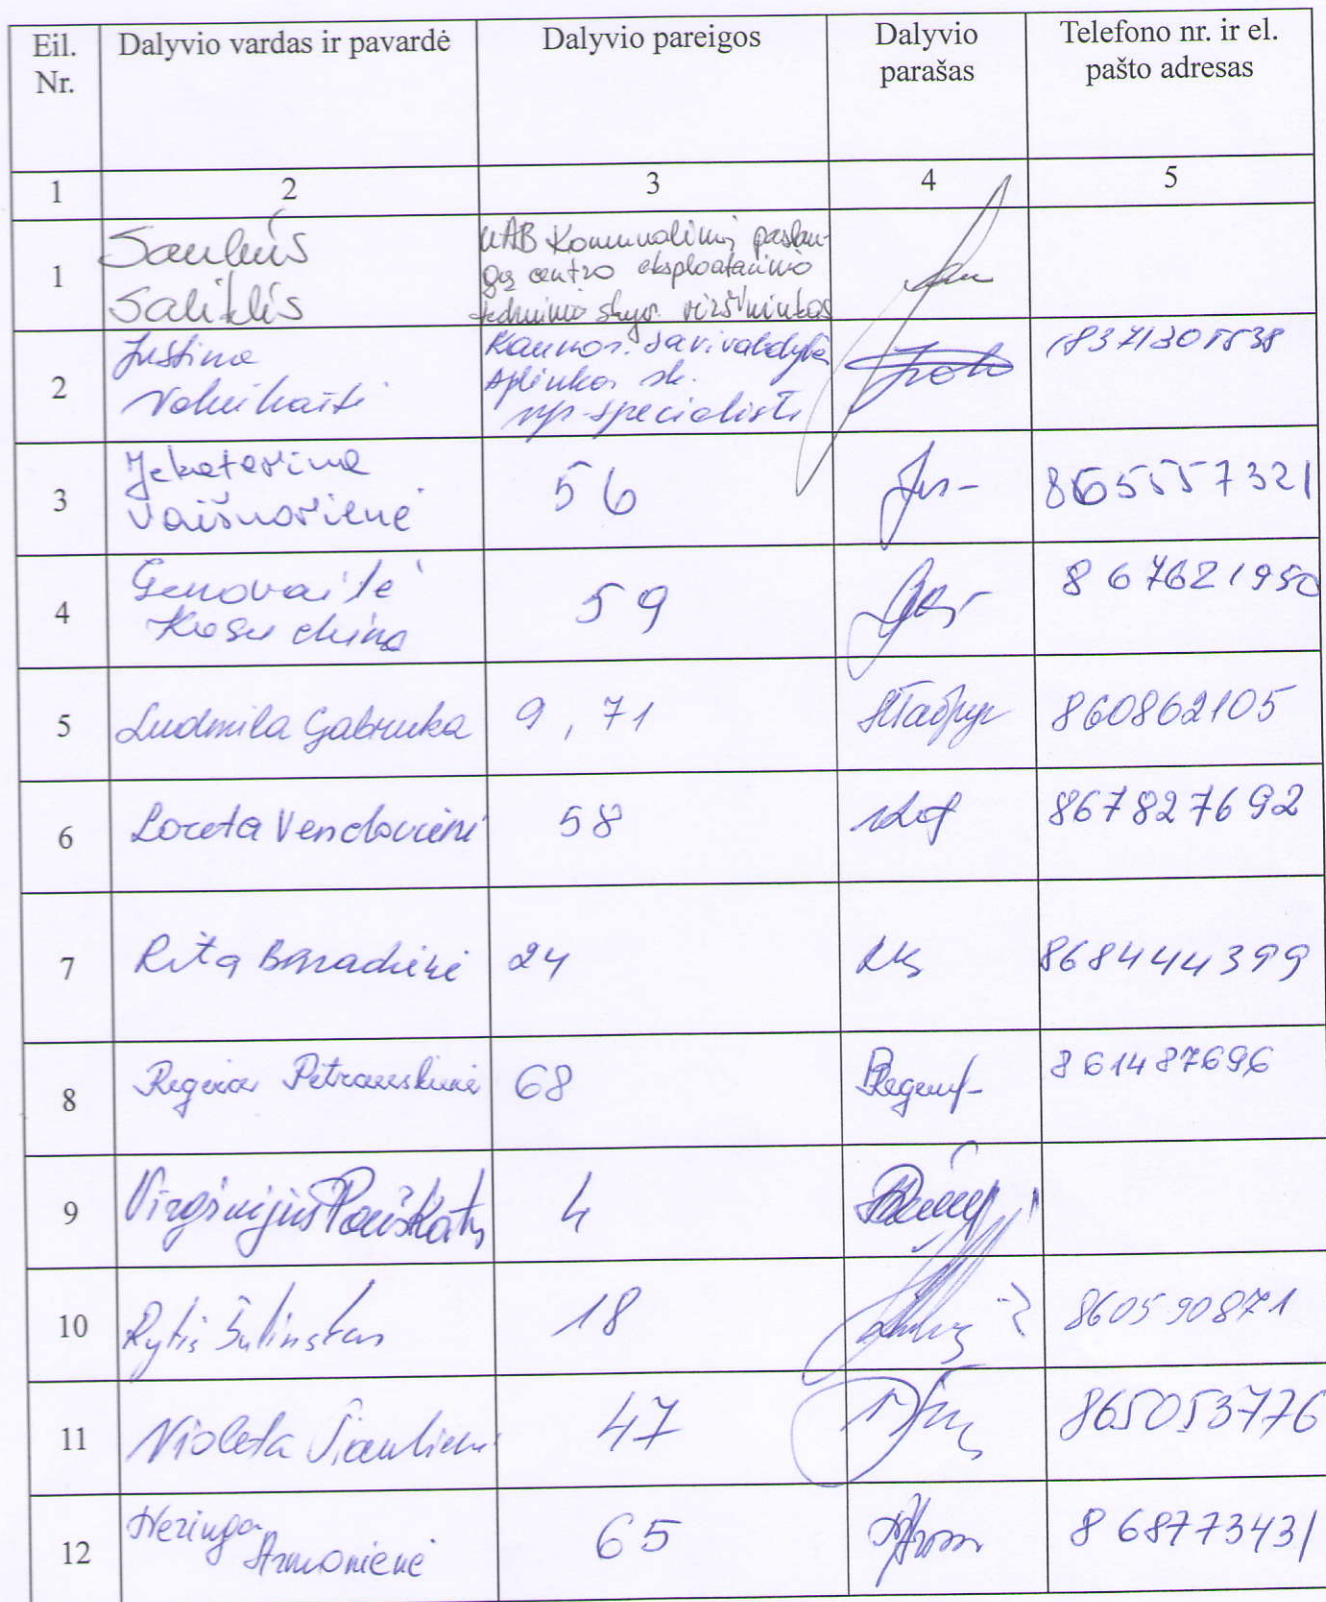 Eil. Nr.
Dalyvio vardas ir pavardė
Dalyvio pareigos
Dalyvio parašas
Telefono nr. ir el. pašto adresas
1 2 3 4 5
1 Saulius
Saliklis
UAB Komunalinių paslau-
gų centro eksploatacinio
techninio skyr. viršininkas
2 Justina
Kauno r. savivaldybė
Aplinkos sk.
vyr. specialistė
3 Jekaterina
Vaišnorienė
56
865557321
4 Genovaitė
59
867621950
5 Ludmila Gabruka 9, 71 860862105
6 Loreta 58 867827692
7 Rita 24 868444399
8 Regina Petrauskienė 68 861487696
9 Virginijus 4
10 Rytis Šulinskas 18 860590871
11 Violeta 47 865053776
12 Neringa
Armonienė
65
868773431